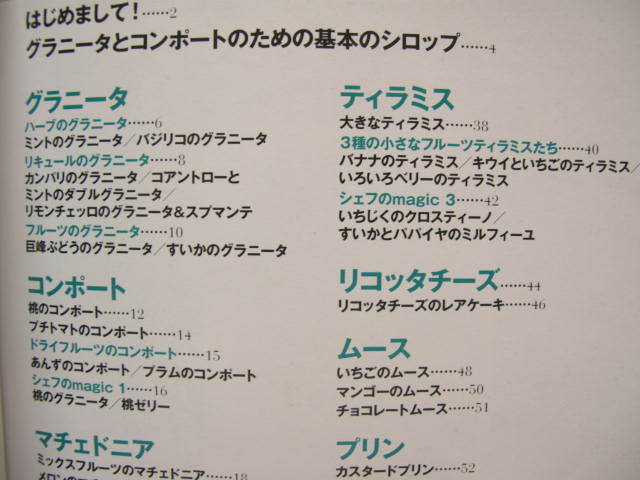 はじめまして!……2
グラニータとコンポートのための基本のシロップ……4
グラニータ
ハーブのグラニータ……6
ミントのグラニータ/バジリコのグラニータ
リキュールのグラニータ……8
カンパリのグラニータ/コアントローと
ミントのダブルグラニータ/
リモンチェッロのグラニータ&スプマンテ
フルーツのグラニータ……10
巨峰ぶどうのグラニータ/すいかのグラニータ
コンポート
桃のコンポート……12
プチトマトのコンポート……14
ドライフルーツのコンポート……15
あんずのコンポート/プラムのコンポート
シェフのmagic 1……16
桃のグラニータ/桃ゼリー
マチェドニア
ミックスフルーツのマチェドニア……18
ティラミス
大きなティラミス……38
3種の小さなフルーツティラミスたち……40
バナナのティラミス/キウイといちごのティラミス/
いろいろベリーのティラミス
シェフのmagic 3……42
いちじくのクロスティーノ/
すいかとパパイヤのミルフィーユ
リコッタチーズ……44
リコッタチーズのレアケーキ……46
ムース
いちごのムース……48
マンゴーのムース……50
チョコレートムース……51
プリン
カスタードプリン……52